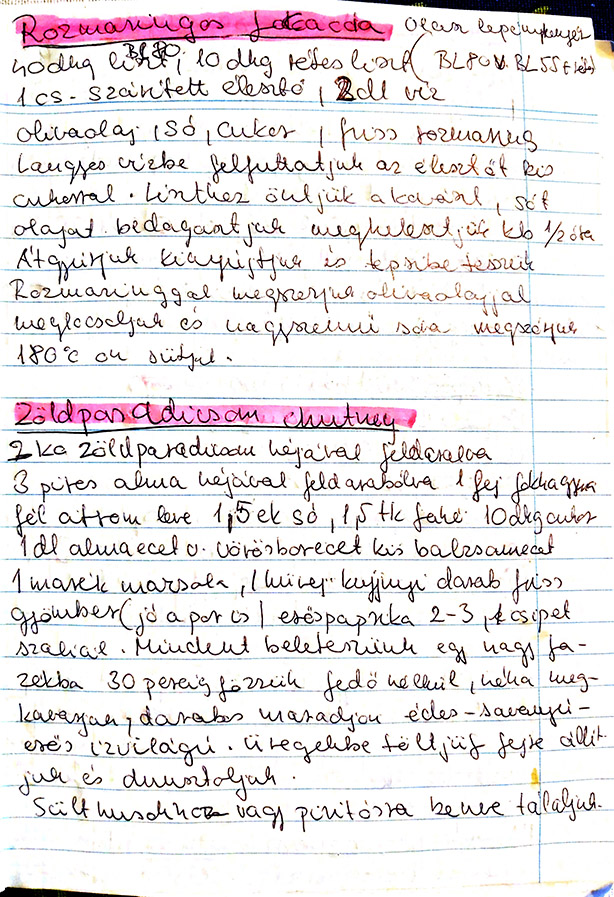 Rozmaringos fokaccia olasz lepénykenyér
40dkg liszt BL80, 10 dkg rétes liszt (BL80 v. BL55 + rétes)
1 cs. szárított élesztő, 2dl víz
olivaolaj, só, cukor, friss rozmaring
Langyos vízbe felfuttatjuk az élesztőt kis
cukorral. Liszthez öntjük a kovászt, sót
olajat. bedagasztjuk megkelesztjük kb 1/2 óra
Átgyúrjuk kinyújtjuk és tepsibe tesszük
Rozmaringgal megszórjuk olivaolajjal
meglocsoljuk és nagyszemű sóval megszórjuk
180°C on sütjük.
Zöldparadicsom chutney
2 kg zöldparadicsom héjával feldarabolva
3 piros alma héjával feldarabolva 1 fej fokhagyma
fél citrom leve 1,5 ek só, 1,5 tk fahé 10dkg cukor
1 dl almaecet v. vörösborecet kis balzsamecet
1 marék mazsola, 1 hüvejkujjnyi darab friss
gyömbér (jó a por is) erőspaprika 2-3, 1 csipet
szalicil. Mindent beleteszünk egy nagy fa-
zékba 30 percig főzzük fedő nélkül, néha meg-
kavarjuk, darabos maradjon édes-savanyú-
erős ízvilágú. Üvegekbe töltjük fejre állít
juk és dunsztoljuk.
Sült husokhoz vagy pirítósra kenve tálaljuk.